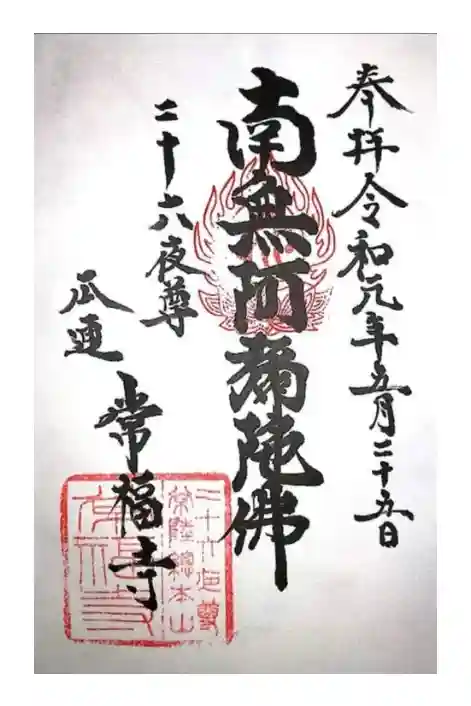 奉拝 令和元年五月二十五日
南無阿彌陀佛
二十六夜尊
瓜連
常福寺
二十六夜尊
常陸總本山
常福寺